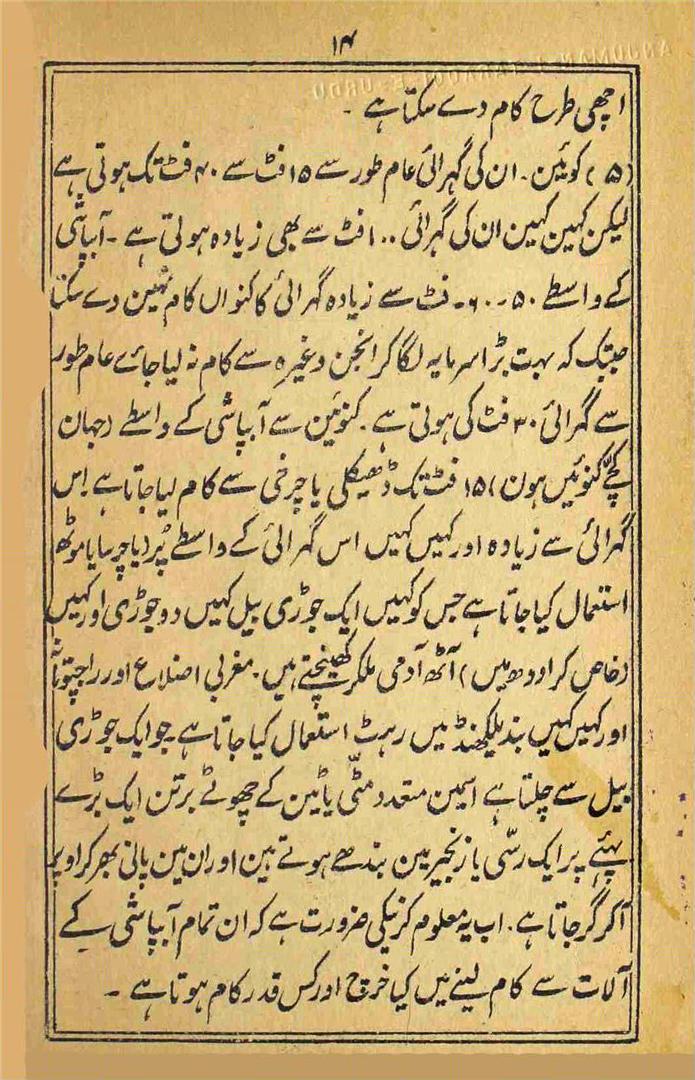 ۱۴
اچھی طرح کام دے سکتا ہے ۔
(۵) کوئین ۔ ان کی گہرائی عام طور سے ۱۵ فٹ سے ۴۰ فٹ تک ہوتی ہے
لیکن کہین کہین ان کی گہرائی ۱۰۰ فٹ سے بھی زیادہ ہوتی ہے ۔ آبپاشی
کے واسطے ۵۰ ۔ ۶۰ ۔ فٹ سے زیادہ گہرائی کا کنواں کام نہین دے سکتا
جبتک کہ بہت بڑا سرمایہ لگا کر انجن وغیرہ سے کام نہ لیا جاے عام طور
سے گہرائی ۳۰ فٹ کی ہوتی ہے ۔ کنوئین سے آبپاشی کے واسطے (جہان
کچّے کنوئیں ہون) ۱۵ فٹ تک ڈھیکلی یا چرخی سے کام لیا جاتا ہے اِس
گہرائی سے زیادہ اور کہیں کہیں اس گہرائی کے واسطے پُر دیا چرسا یا موٹھ
استعمال کیا جاتا ہے جس کو کہیں ایک جوڑی بیل کہیں دو جوڑی اور کہیں
(خاص کر اودھ میں) آٹھ آدمی ملکر کھینچتے ہیں ۔ مغربی اضلاع اور راجپوتانہ
اور کہیں کہیں بندیلکھنڈ میں رہٹ استعمال کیا جاتا ہے جو ایک جوڑی
بیل سے چلتا ہے اسمین متعدد مٹّی یا ٹین کے چھوٹے برتن ایک بڑے
پہئے پر ایک رسّی یا زنجیر مین بندھے ہوتے ہین اور ان مین پانی بھر کر اوپر
آکر گر جاتا ہے ۔ اب یہ معلوم کرنیکی ضرورت ہے کہ ان تمام آبپاشی کے
آلات سے کام لینے میں کیا خرچ اور کس قدر کام ہوتا ہے ۔